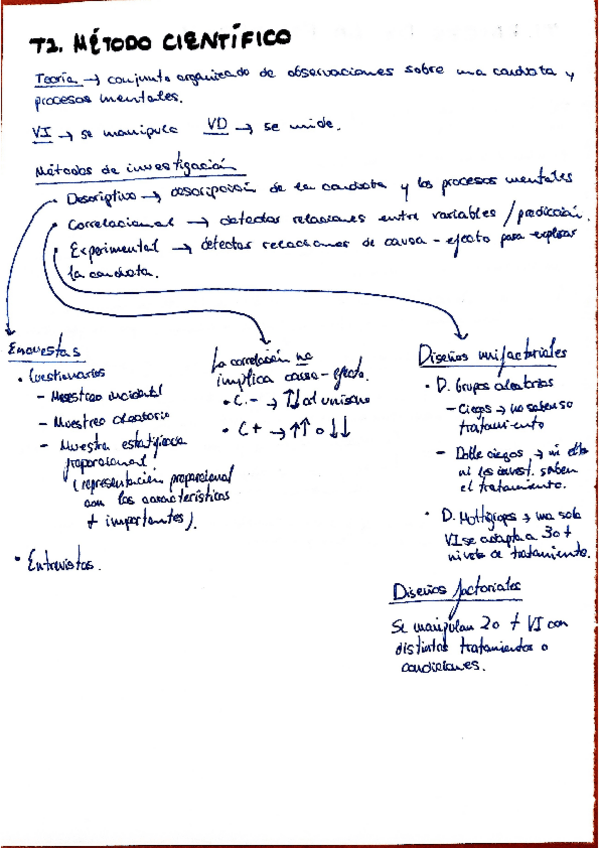 T2. MÉTODO CIENTÍFICO
Teoría → conjunto organizado de observaciones sobre una conducta y
procesos mentales.
VI → se manipula VD → se mide.
Métodos de investigación
Descriptivo → descripción de la conducta y los procesos mentales
• Correlacional → detectar relaciones entre variables / predicción.
• Experimental → detectar relaciones de causa - efecto para explicar
la conducta.
Encuestas
• Cuestionarios
- Muestreo incidental
- Muestreo aleatorio
- Muestra estratificada
proporcional
(representación proporcional
con las características
+ importantes).
• Entrevistas.
La correlación no
implica causa - efecto.
• C. - → ↑↓ al unísono
• C + → ↑↑ o ↓↓
Diseños unifactoriales
• D. Grupos aleatorios
- Ciegos → no saben su
tratamiento
- Doble ciegos → ni ellos
ni los invest. saben
el tratamiento.
• D. Multigrupos → una sola
VI se adapta a 3 o +
niveles de tratamiento.
Diseños factoriales
Se manipulan 2 o + VI con
distintos tratamientos o
condiciones.